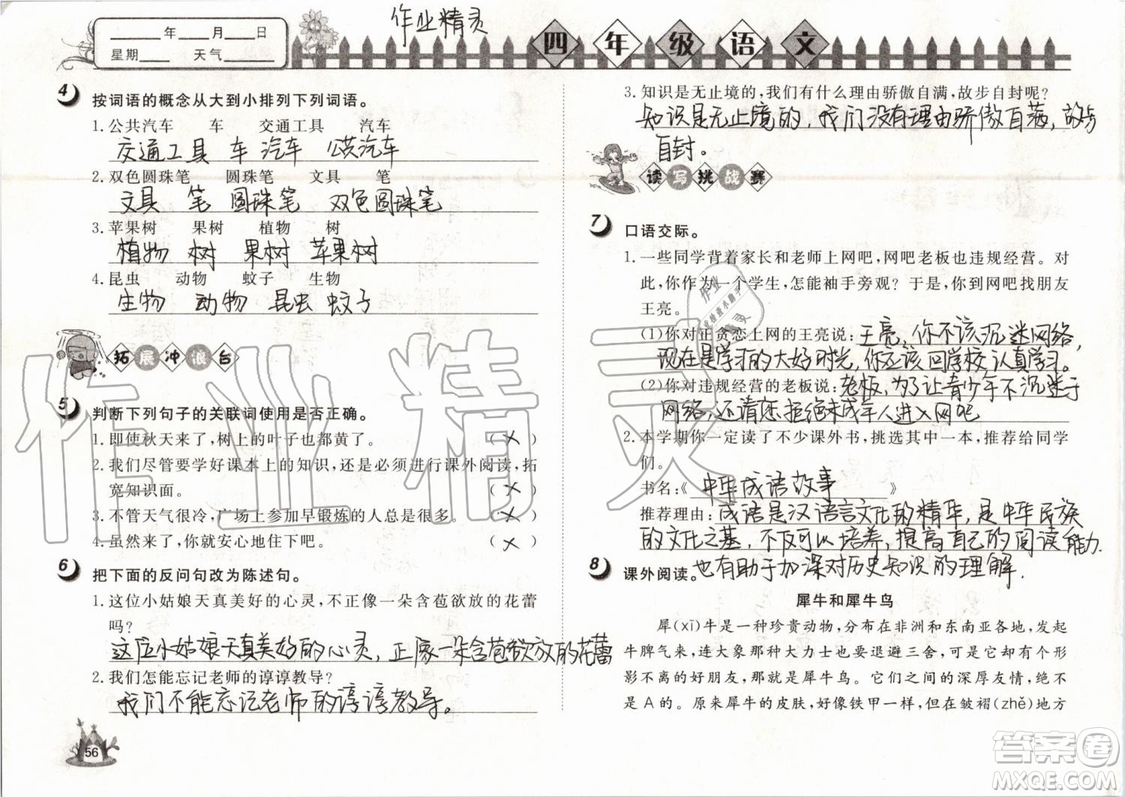 ____年____月____日
星期____ 天气____
作业精灵
四年级语文
4 按词语的概念从大到小排列下列词语。
1. 公共汽车 车 交通工具 汽车
交通工具 车 汽车 公共汽车
2. 双色圆珠笔 圆珠笔 文具 笔
文具 笔 圆珠笔 双色圆珠笔
3. 苹果树 果树 植物 树
植物 树 果树 苹果树
4. 昆虫 动物 蚊子 生物
生物 动物 昆虫 蚊子
拓展冲浪台
5 判断下列句子的关联词使用是否正确。
1. 即使秋天来了,树上的叶子也都黄了。 (×)
2. 我们尽管要学好课本上的知识,还是必须进行课外阅读,拓
宽知识面。 (×)
3. 不管天气很冷,广场上参加早锻炼的人总是很多。 (×)
4. 虽然来了,你就安心地住下吧。 (×)
6 把下面的反问句改为陈述句。
1. 这位小姑娘天真美好的心灵,不正像一朵含苞欲放的花蕾
吗?
这位小姑娘天真美好的心灵,正像一朵含苞欲放的花蕾
2. 我们怎能忘记老师的谆谆教导?
我们不能忘记老师的谆谆教导。
56
3. 知识是无止境的,我们有什么理由骄傲自满,故步自封呢?
知识是无止境的,我们没有理由骄傲自满,故步
自封。
读写挑战赛
7 口语交际。
1. 一些同学背着家长和老师上网吧,网吧老板也违规经营。对
此,你作为一个学生,怎能袖手旁观?于是,你到网吧找朋友
王亮。
(1)你对正贪恋上网的王亮说:王亮,你不该沉迷网络,
现在是学习的大好时光,你应该回学校认真学习。
(2)你对违规经营的老板说:老板,为了让青少年不沉迷于
网络,还请您拒绝未成年人进入网吧
2. 本学期你一定读了不少课外书,挑选其中一本,推荐给同学
们。
书名:《 中华成语故事 》
推荐理由:成语是汉语言文化的精华,是中华民族
的文化之基,不仅可以培养,提高自己的阅读能力.
也有助于加深对历史知识的理解.
8 课外阅读。
犀牛和犀牛鸟
犀(xī)牛是一种珍贵动物,分布在非洲和东南亚各地,发起
牛脾气来,连大象那种大力士也要退避三舍,可有一种小鸟却和它
形影不离的好朋友,那就是犀牛鸟。它们之间的深厚友情,绝
是 A 的。原来犀牛的皮肤,好像铁甲一样,但在皱褶(zhě)地方
作业精灵
答案圈
MXQE.COM